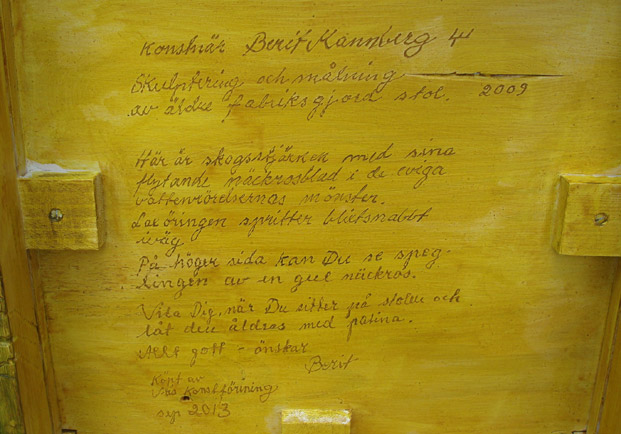 Konstnär Berit Kannberg
Skulptering och målning
av äldre fabriksgjord stol. 2009
Här är skogstjärnen med sina
flytande näckrosblad i de eviga
vattenvördnernas mönster.
Laxöringen spritter blixtsnabbt
iväg
På höger sida kan Du se speg-
lingen av en gul näckros.
Vila Dig, när Du sitter på stolen och
låt den åldras med patina.
Allt gott - önskar
Berit
Köpt av
Konstförining
sep 2013